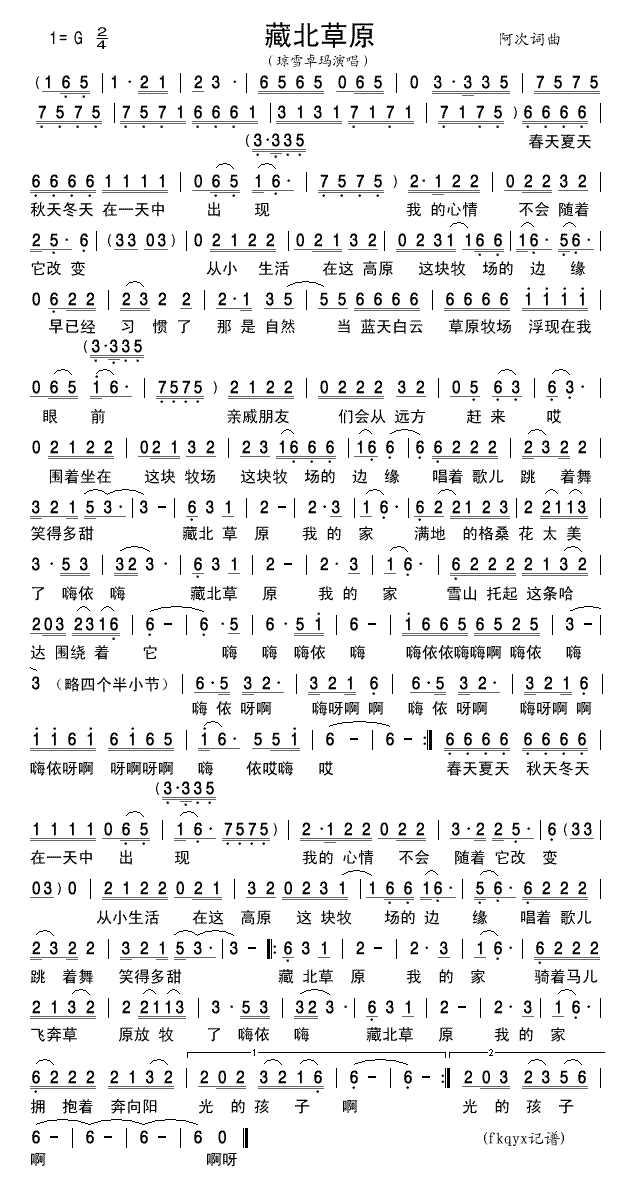 藏北草原
1= G 2/4
阿次词曲
(琼雪卓玛演唱)
(1 6 5 | 1·21 | 2 3· | 6565 065 | 0 3·335 | 7575
7575 7571 6661 | 3131 7171 | 7175) 6666
(3·335
春天夏天
6666 1111 | 065 16· | 7575) 2·122 | 022 32 |
秋天冬天 在一天中 出 现 我 的心情 不会 随着
25· 6 | (33 03) | 02122 | 02132 | 0231 166 | 16· 56· |
它改 变 从小 生活 在这 高原 这块牧 场的 边 缘
0 622 | 232 2 | 2·1 35 | 55 6666 | 6666 1111 |
早已经 习 惯了 那是自然 当 蓝天白云 草原牧场 浮现在我
(3·335
065 16· | 7575) 2122 | 0222 32 | 05 63 | 63· |
眼 前 亲戚朋友 们会从 远方 赶 来 哎
0 2122 | 02132 | 23 1666 | 166 6 | 6222 2322 |
围着坐在 这块 牧场 这块牧 场的 边 缘 唱着 歌儿 跳 着舞
3213 53· | 3 - | 631 | 2 - | 2·3 | 16· | 622 2123 2 2113 |
笑得多甜 藏北 草 原 我 的 家 满地 的格桑 花 太 美
3·53 | 323· | 631 | 2 - | 2·3 | 16· | 6222 2132 |
了 嗨依 嗨 藏北草 原 我 的 家 雪山 托起 这条哈
203 2316 | 6 - | 6·5 | 6·51 | 6 - | 1665 6525 | 3 - |
达 围绕 着 它 嗨 嗨 嗨依 嗨 嗨依依嗨嗨啊 嗨依 嗨
3 (略四个半小节) | 6·5 32· | 321 6 | 6·5 32· | 321 6 |
嗨 依 呀啊 嗨呀啊 啊 嗨 依 呀啊 嗨呀啊 啊
1161 6165 | 16· 551 | 6 - | 6 - :‖ 6666 6666 |
嗨依呀啊 呀啊呀啊 嗨 依哎嗨 哎 春天夏天 秋天冬天
(3·335
1111 065 | 16· 7575) | 2·122 022 | 3·2 25· | 6 (33 |
在一天中 出 现 我的 心情 不会 随着 它改 变
03) 0 | 2122 021 | 32 0231 | 166 16· | 56· 6222 |
从小生活 在这 高原 这 块牧 场的 边 缘 唱着 歌儿
2322 3213 53· | 3 - ‖: 631 | 2 - | 2·3 | 16· | 6222 |
跳 着舞 笑得多甜 藏 北草 原 我 的 家 骑着马儿
2132 | 2 2113 | 3·53 | 323· | 631 | 2 - | 2·3 | 16· |
飞奔草 原放 牧 了 嗨依 嗨 藏北草 原 我 的 家
1 2
6222 2132 | 202 3216 | 6 - | 6 - :‖ 203 2356 |
拥 抱着 奔向阳 光 的 孩 子 啊 光 的 孩 子
6 - | 6 - | 6 - | 6 0 ‖
(fkqyx记谱)
啊 啊呀